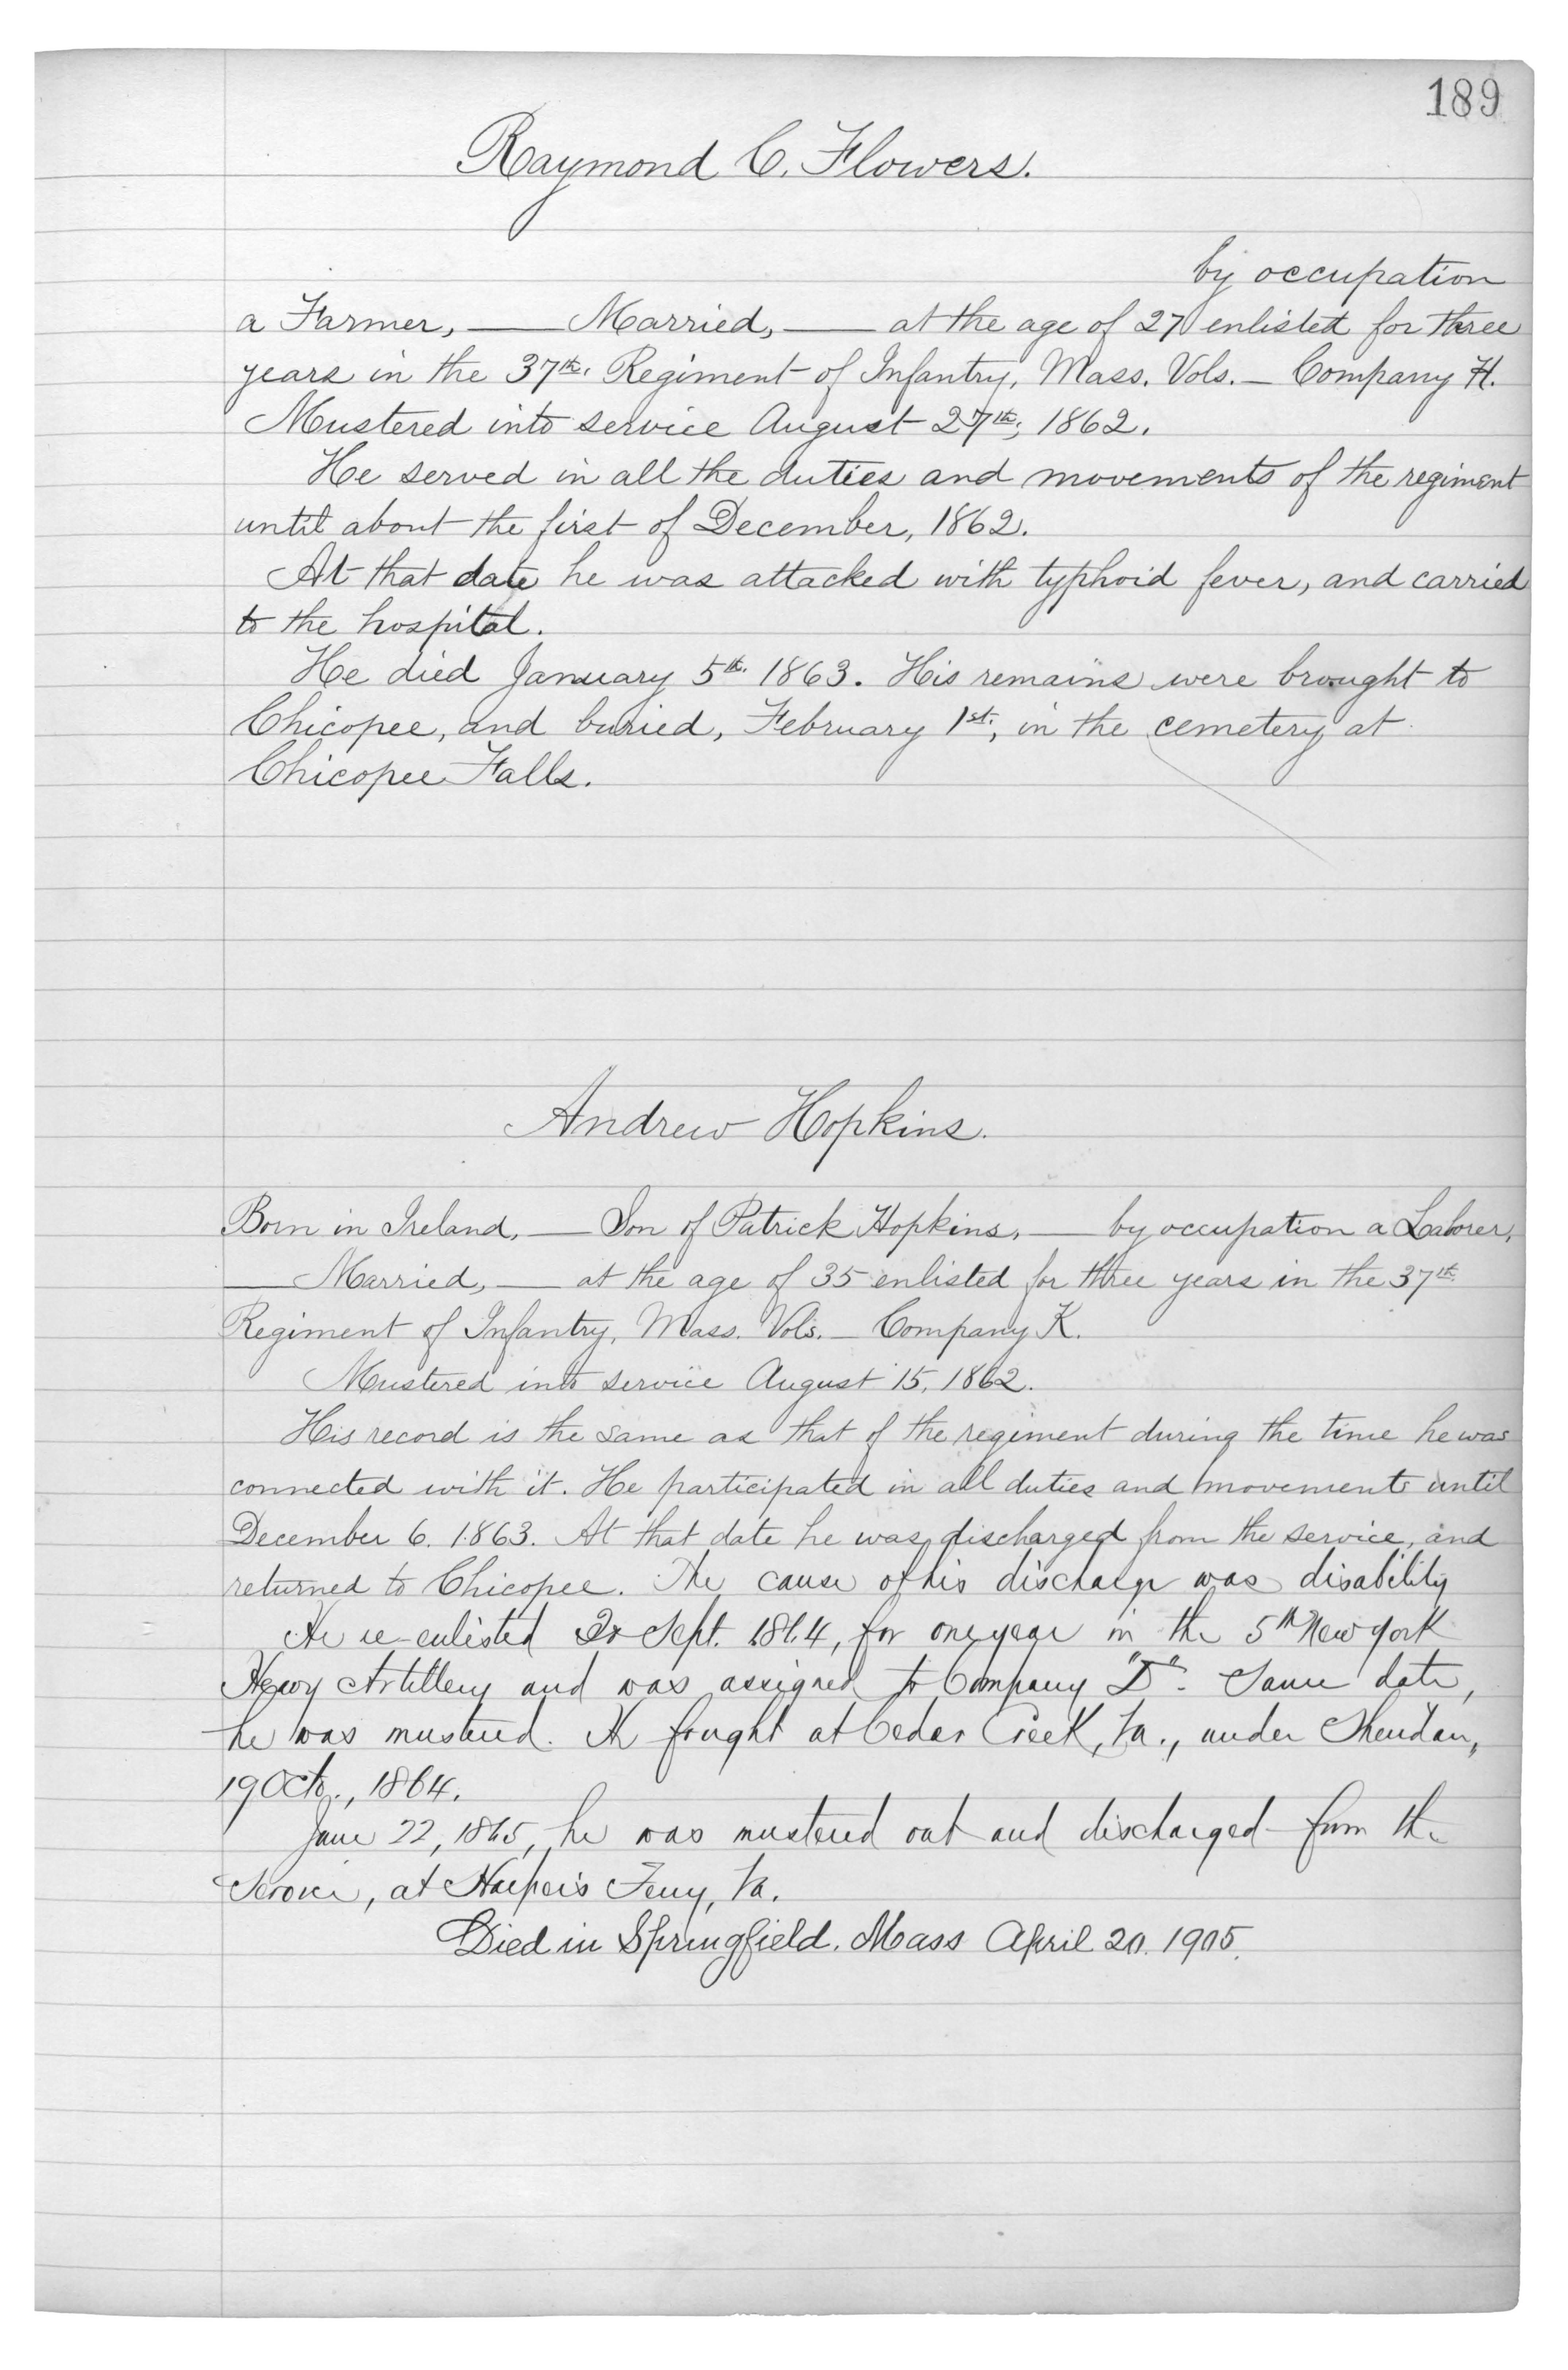 189
Raymond C. Flowers.
by occupation
a Farmer, — Married, — at the age of 27 enlisted for three
years in the 37th. Regiment of Infantry, Mass. Vols. — Company H.
Mustered into service August 27th, 1862.
He served in all the duties and movements of the regiment
until about the first of December, 1862.
At that date he was attacked with typhoid fever, and carried
to the hospital.
He died January 5th. 1863. His remains were brought to
Chicopee, and buried, February 1st, in the cemetery at
Chicopee Falls.
Andrew Hopkins.
Born in Ireland, — Son of Patrick Hopkins, — by occupation a Laborer,
— Married, — at the age of 35 enlisted for three years in the 37th
Regiment of Infantry, Mass. Vols. — Company K.
Mustered into service August 15, 1862.
His record is the same as that of the regiment during the time he was
connected with it. He participated in all duties and movements until
December 6. 1863. At that date he was discharged from the service, and
returned to Chicopee. The cause of his discharge was disability
He re-enlisted Sept. 1864, for one year in the 5th New York
Heavy Artillery and was assigned to Company "D". Same date,
he was mustered. He fought at Cedar Creek, Va., under Sheridan,
19 Octo., 1864.
June 22, 1865, he was mustered out and discharged from the
service, at Harper's Ferry, Va.
Died in Springfield. Mass April 20. 1905.